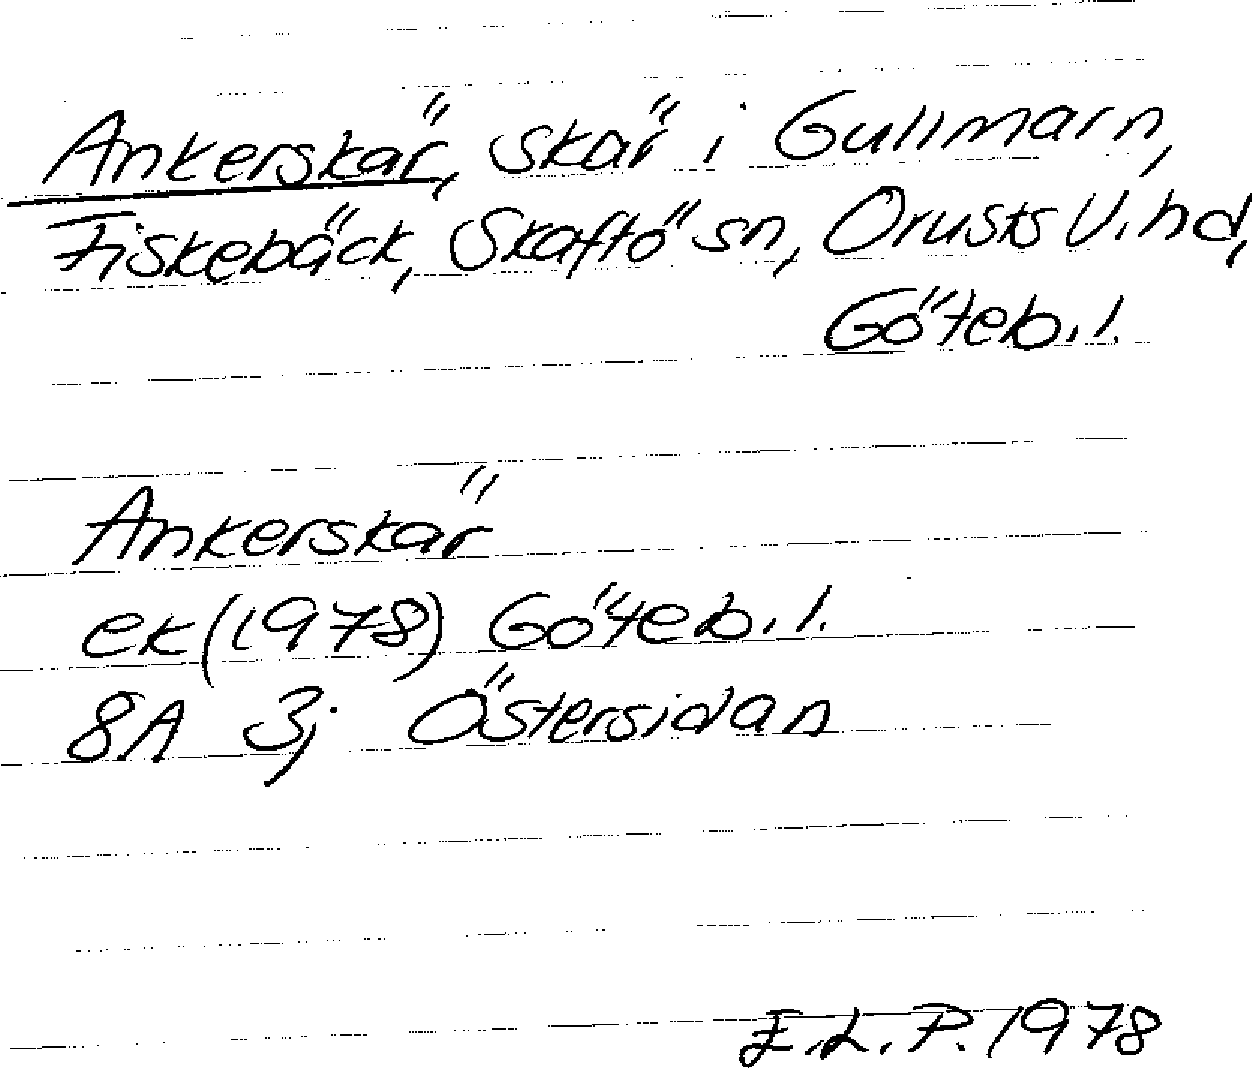 Ankerskär, skär i Gullmarn,
Fiskebäck, Skaftö sn, Orusts V. hd,
Göteb. l.
Ankerskär
ek (1978) Göteb. l.
8A 3j Östersidan
E.L.P. 1978